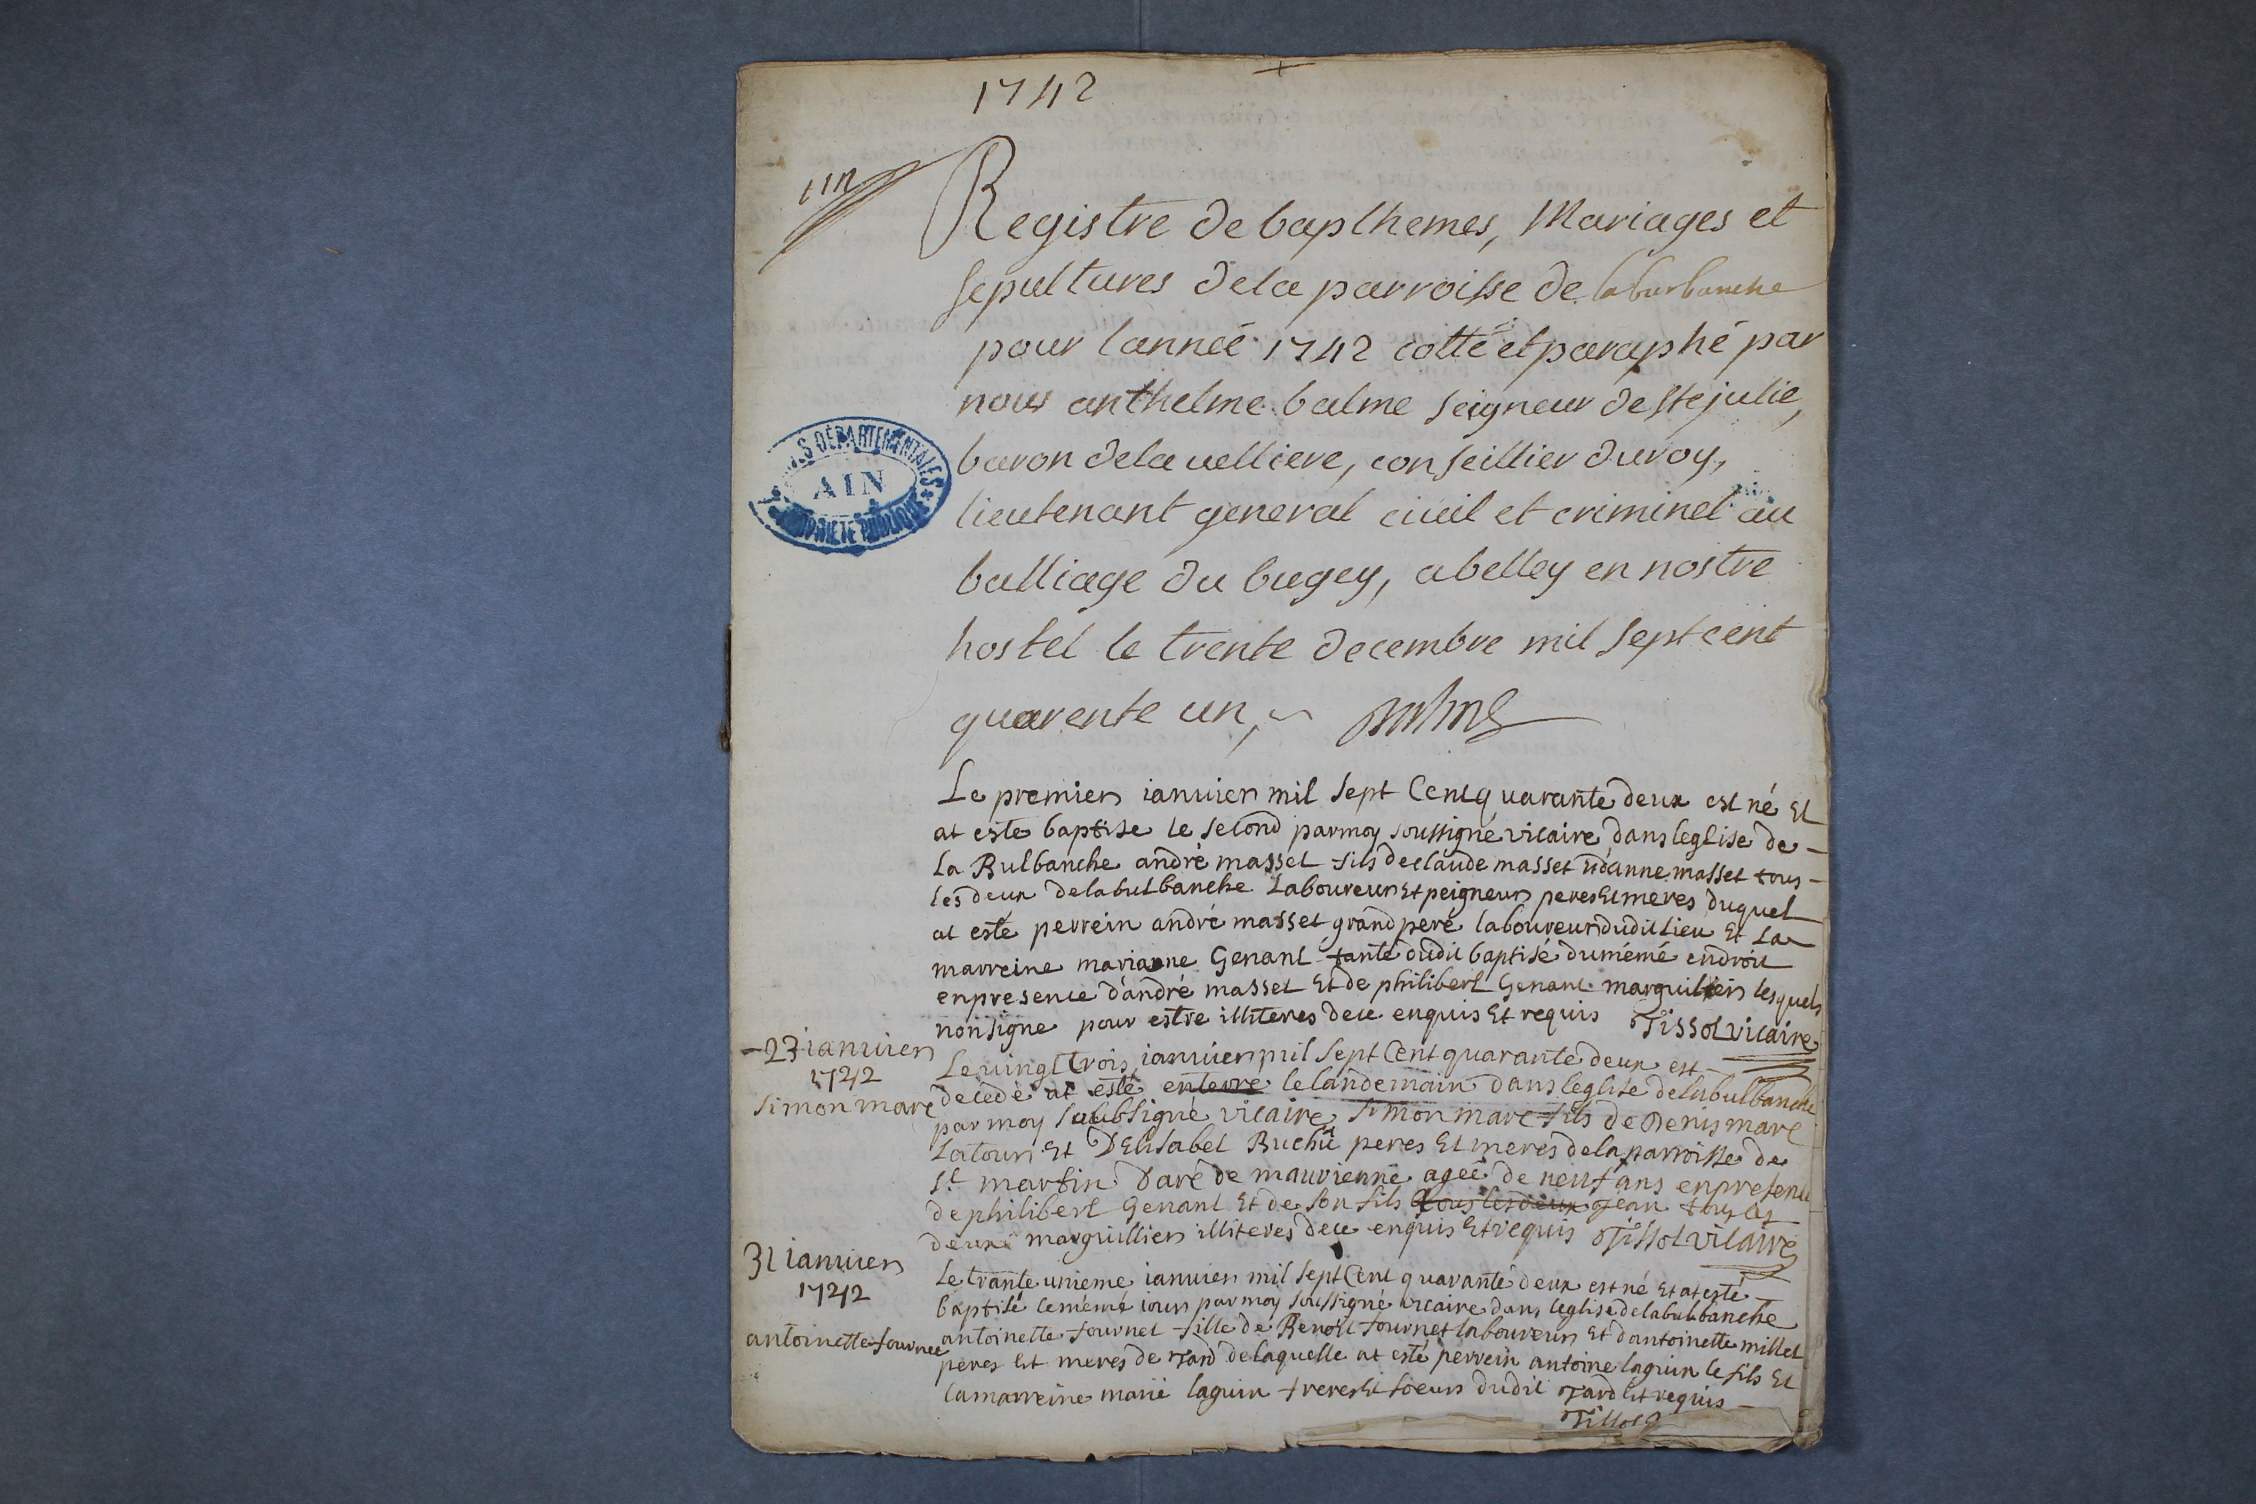 1742
Registre de bapthemes, Mariages et
sepultures dela parroisse de la burbanche
pour lannée 1742 cotté et paraphé par
nous anthelme balme seigneur de ste julie,
baron dela uelliere, conseillier du roy,
lieutenant general ciuil et criminel au
balliage du bugey, a belley en nostre
hostel le trente decembre mil sept cent
quarente un,
AIN
Le premier ianuier mil sept Cent quarante deux est né Et
at esté baptise le second par moy soussigné vicaire dans leglise de
La Bulbanche andré masset fils de claude masset danne masset tous
les deux de la bulbanche Laboureur Et peigneur peres Et meres duquel
at esté perrein andré masset grand pere laboureur dudit Lieu Et La
marreine marianne Genant tante dudit baptisé du mémé endroit
en presence dandré masset Et de philibert Genant marguillier lesquels
non signe pour estre illiteres de ce enquis Et requis Tissot vicaire
23 ianuier
1742
simon mare
Le uingt trois ianuier mil sept Cent quarante deux est
decede at esté enterre le landemain dans leglise de la bulbanche
par moy subsigné vicaire simon mare fils de Denis mare
Latour Et DElisabet Buchu peres Et meres de la parroisse de
st martin Daré de maurienne ageé de neuf ans en presence
de philibert Genant Et de son fils tous les deux jean tous les
deux marguillier illiteres de ce enquis Et requis Tissot vicaire
31 ianuier
1742
antoinette fournet
Le trante unieme ianuier mil sept Cent quaranté deux est né Et at esté
baptisé le mémé iour par moy soussigné vicaire dans leglise de la bulbanche
antoinette fournet fille de Benoit fournet laboureur Et dantoinette millet
peres Et meres de Tard de laquelle at esté perrein antoine laguin le fils Et
la marreine marie laguin freres Et soeur dudit Tard Et requis
Tissot